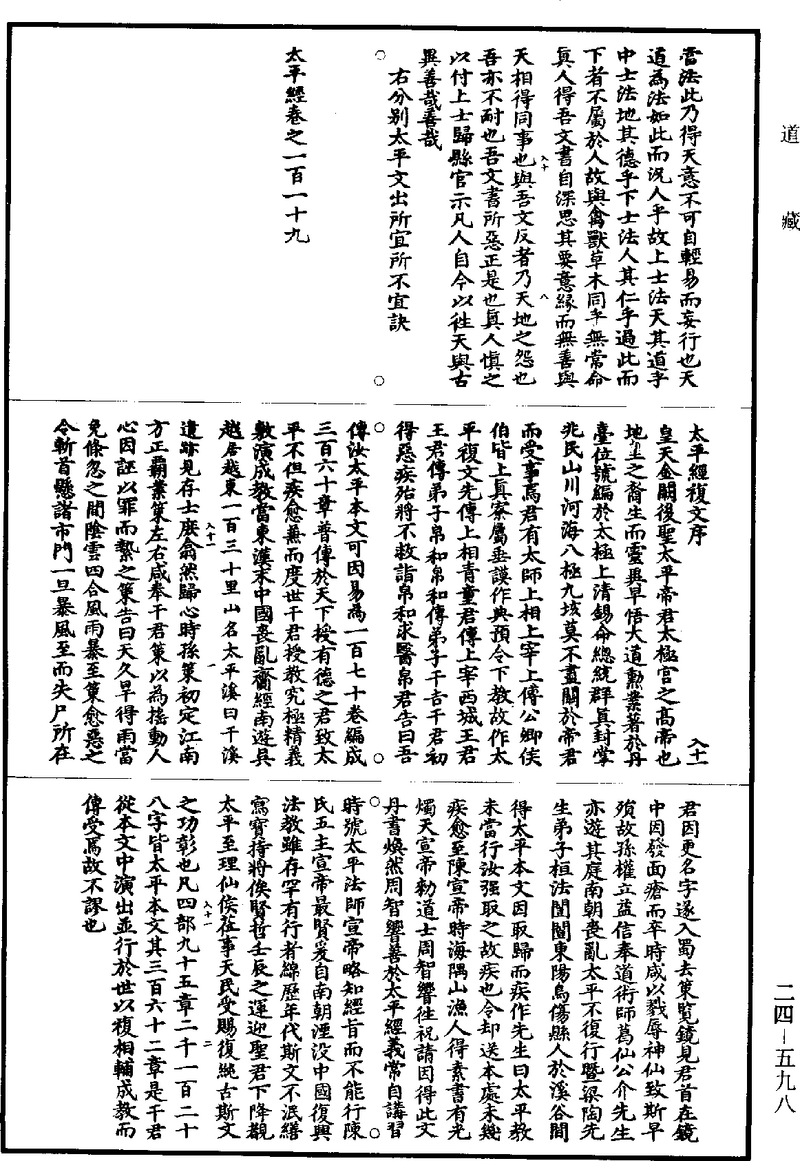 道藏
當法此乃得天意不可自輕易而妄行也天
道為法如此而況人乎故上士法天其道乎
中士法地其德乎下士法人其仁乎過此而
下者不屬於人故與禽獸草木同乎無常命
真人得吾文書自深思其要意緣而無善與
天相得同事也與吾文反者乃天地之怨也
吾亦不耐也吾文書所惡正是也真人慎之
以付上士歸縣官示凡人自今以往天與古
異善哉善哉
右分別太平文出所宜所不宜訣
太平經卷之一百一十九
太平經複文序
入十一
皇天金闕後聖太平帝君太極宮之高帝也
地皇之裔生而靈異早悟大道勳業著於丹
臺位號編於太極上清錫命總統群真封掌
兆民山川河海八極九垓莫不盡關於帝君
而受事焉君有太師上相上宰上傅公卿侯
伯皆上真寮屬垂謨作典預令下教故作太
平複文先傳上相青童君傳上宰西城王君
王君傳弟子帛和帛和傳弟子干吉干君初
得惡疾殆將不救詣帛和求醫帛君告曰吾
傳汝太平本文可因易為一百七十卷編成
三百六十章普傳於天下授有德之君致太
平不但疾愈兼而度世干君授教究極精義
敷演成教當東漢末中國喪亂齎經南遊吳
越居越東一百三十里山名太平溪曰干溪
遺跡見存士庶翕然歸心時孫策初定江南
方正霸業策左右咸奉干君策以為搖動人
心因誣以罪而繫之策告曰天久旱得雨當
免倏忽之間陰雲四合風雨暴至策愈惡之
令斬首懸諸市門一旦暴風至而失尸所在
君因更名字遂入蜀去策覽鏡見君首在鏡
中因發面瘡而卒時咸以戮辱神仙致斯早
殞故孫權立益信奉道術師葛仙公介先生
亦遊其庭南朝喪亂太平不復行暨梁陶先
生弟子桓法闓闓東陽烏傷縣人於溪谷間
得太平本文因取歸而疾作先生曰太平教
未當行汝强取之故疾也令却送本處未幾
疾愈至陳宣帝時海隅山漁人得素書有光
燭天宣帝勑道士周智響往祝請因得此文
丹書煥然周智響善於太平經義常自講習
時號太平法師宣帝略知經旨而不能行陳
氏五主宣帝最賢爰自南朝湮沒中國復興
法教雖存罕有行者綿歷年代斯文不泯繕
寫寶持將俟賢哲壬辰之運迎聖君下降覩
太平至理仙侯蒞事天民受賜復純古斯文
之功彰也凡四部九十五章二千一百二十
八字皆太平本文其三百六十二章是干君
從本文中演出並行於世以複相輔成教而
傳受焉故不謬也
二四—五九八